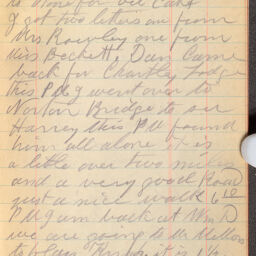 to Stone for oil Cake
I got two letters one from
Mrs Rowley one from
Mrs Beckett. Dan Came
back for Chartley Lodge
this PM g went over to
Norton Bridge to see
Harvey this PM found
him all alone it is
a little over two miles
and a very good Road
just a nice walk 6 10
PM g am back at Mrs D
we are going to Mr
to it is